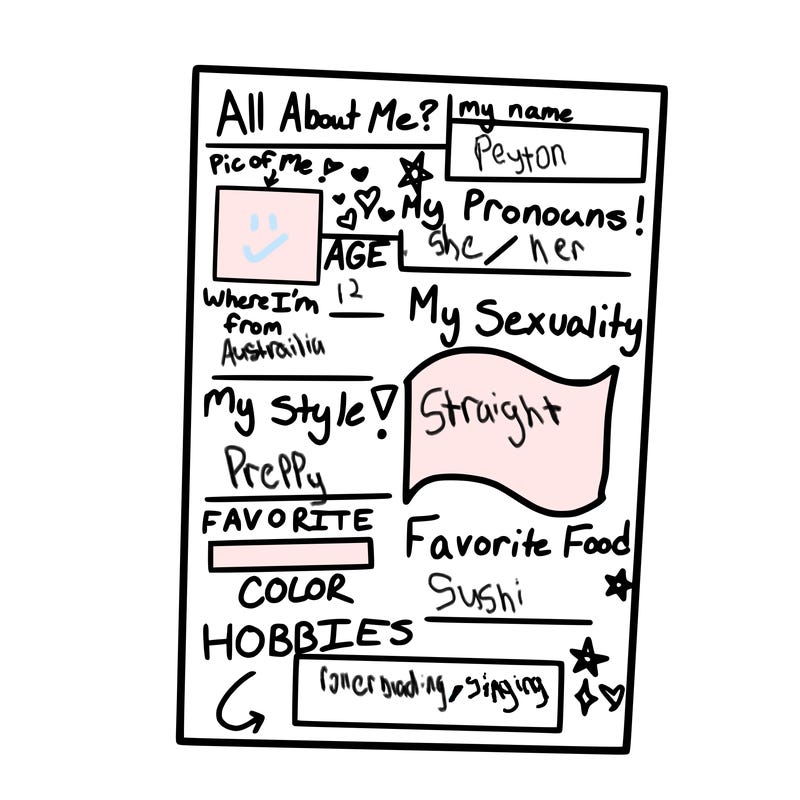 All About Me?
my name
Peyton
Pic of Me!
My Pronouns!
she/her
AGE
12
Where I'm
from
Austrailia
My Sexuality
Straight
My Style!
Preppy
FAVORITE
COLOR
Favorite Food
Sushi
HOBBIES
rollerblading, singing